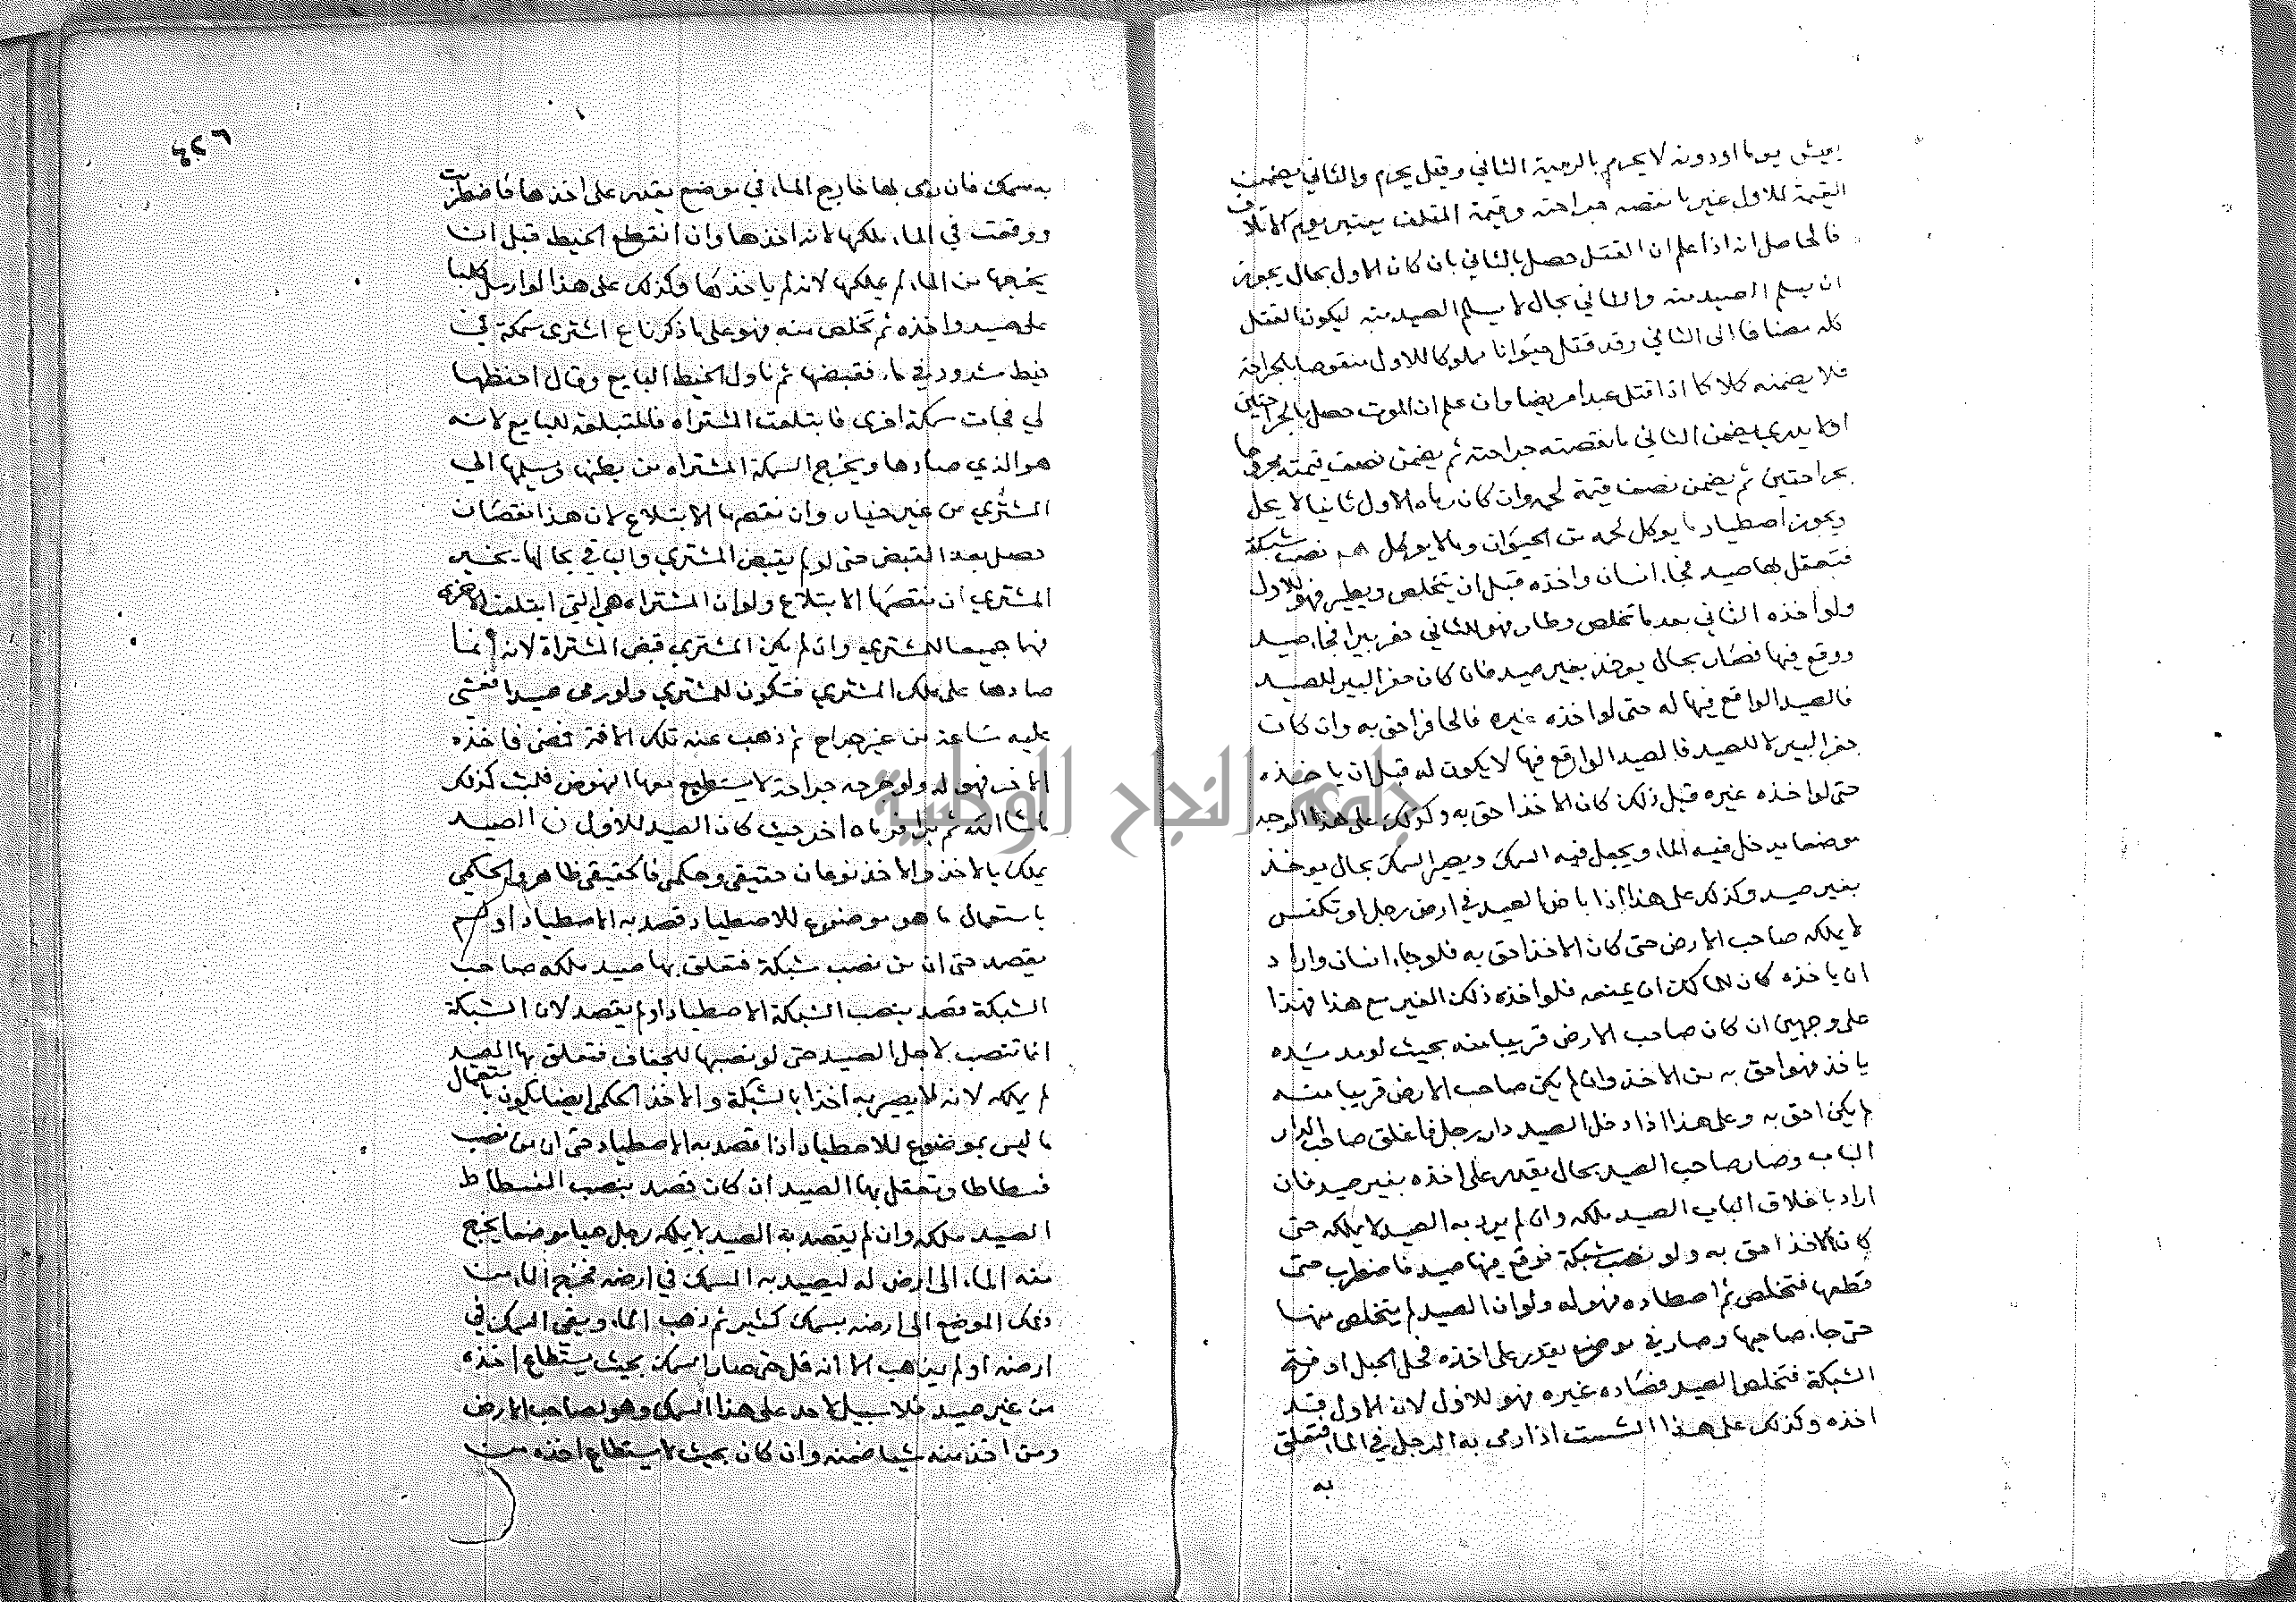 يعيش يوما او دونه لا يحرم بالرمية الثاني وقيل يحرم والثاني يضمن
القيمة للاول غير ما نقصه جراحته وقيمة المتلف يعتبر يوم الاتلاف
فالحاصل انه اذا علم ان القتل حصل بالثاني بان كان الاول بحال يجوز
ان يسلم الصيد منه والثاني بحال لا يسلم الصيد منه ليكون القتل
كله مضافا الى الثاني وقد قتل حيوانا مملوكا للاول منقوصا بالجراحة
فلا يضمنه كلا كما اذا قتل عبدا مريضا وان علم ان الموت حصل بالجراحتين
او لا يدري يضمن الثاني ما نقصته جراحته ثم يضمن نصف قيمته مجروحا
بجراحتين ثم يضمن نصف قيمة لحمه وان كان رماه الاول ثانيا لا يحل
ويجوز اصطياد ما يوكل لحمه من الحيوان وما لا يوكل نصب شبكة
فتعقل بها صيد فجاء انسان واخذه قبل ان يتخلص ويطير فهو للاول
ولو اخذه الثاني بعد ما تخلص وطار فهو للثاني حفر بيرا فجاء صيد
ووقع فيها فصار بحال يوخذ بغير صيد فان كان حفر البير للصيد
فالصيد الواقع فيها له حتى لو اخذه غيره فالحافر احق به وان كان
حفر البير لا للصيد فالصيد الواقع فيها لا يكون له قبل ان ياخذه
حتى لو اخذه غيره قبل ذلك كان الاخذ احق به وكذلك على هذا الوجه
موضعا يدخل فيه الماء ويجعل فيه السمك ويصير السمك بحال يوخذ
بغير صيد وكذلك على هذا اذا باض الصيد في ارض رجل او تكنس
لا يملكه صاحب الارض حتى كان الاخذ احق به فلو جاء انسان واراد
ان ياخذه كان للمالك ان يمنعه فلو اخذه ذلك الغير مع هذا فهذا
على وجهين ان كان صاحب الارض قريبا منه بحيث لو مد يده
ياخذ فهو احق به من الاخذ وان لم يكن صاحب الارض قريبا منه
لم يكن احق به وعلى هذا اذا دخل الصيد دار رجل فاغلق صاحب الدار
الباب وصار صاحب الصيد بحال يقدر على اخذه بغير صيد فان
اراد باغلاق الباب الصيد ملكه وان لم يرد به الصيد لا يملكه حتى
كان الاخذ احق به ولو نصب شبكة فوقع فيها صيد فاضطرب حتى
قطعها فتخلص ثم اصطاده فهو له ولو ان الصيد لم يتخلص منها
حتى جاء صاحبها وصار في موضع يقدر على اخذه فحل الحبل او فتح
الشبكة فتخلص الصيد فصاده غيره فهو للاول لان الاول قد
اخذه وكذلك على هذا الشست اذا رمى به الرجل في الماء فتعلق
به
٤٢٦
به سمك فان رمى بها خارج الماء في موضع يقدر على اخذها فاضطربت
ووقعت في الماء ملكها لانه اخذها وان انقطع الخيط قبل ان
يخرجها من الماء لم يملكها لانه لم ياخذها وكذلك على هذا لو ارسل كلبا
على صيد واخذه ثم تخلص منه فهو على ما ذكرنا ع اشترى سمكة في
خيط مشدود في ماء فقبضها ثم ناول الخيط البايع وقال احفظها
لي فجات سمكة اخرى فابتلعت المشتراه فالمتبلعة للبايع لانه
هو الذي صادها ويخرج السمكة المشتراه من بطنها ويسلمها الى
المشتري من غير خيار وان نقصها الابتلاع لان هذا نقصان
حصل بعد القبض حتى لو لم يقبض المشتري والباقي بحالها يخير
المشتري ان نقصها الابتلاع ولو ان المشتراه هي التي ابتلعت الاخرى
فهما جميعا للمشتري وان لم يكن المشتري قبض المشتراة لانه انما
صادها على ملك المشتري فتكون للمشتري ولو رمى صيدا فغشي
عليه ساعة من غير جراح ثم ذهب عنه تلك الافة فمضى فاخذه
الاخر فهو له ولو جرحه جراحة لا يستطيع معها النهوض فلبث كذلك
ما شا الله ثم برا فرماه اخر حيث كان الصيد للاول ن الصيد
يملك بالاخذ والاخذ نوعان حقيقي وحكمي فالحقيقي ظاهر والحكمي
باستعمال ما هو موضوع للاصطياد قصد به الاصطياد او لم
يقصد حتى ان من نصب شبكة فتعلق بها صيد ملكه صاحب
الشبكة قصد بنصب الشبكة الاصطياد او لم يقصد لان الشبكة
انما تنصب لاجل الصيد حتى لو نصبها للجفاف فتعلق بها الصيد
لم يملكه لانه لا يصير به اخذا بالشبكة والاخذ الحكمي ايضا يكون باستعمال
ما ليس بموضوع للاصطياد اذا قصد به الاصطياد حتى ان من نصب
فسطاطا وتعقل بها الصيد ان كان قصد بنصب الفسطاط
الصيد ملكه وان لم يقصد به الصيد لا يملكه رجل هيا موضعا يخرج
منه الماء الى ارض له ليصيد به السمك في ارضه فخرج الماء من
ذلك الموضع الى ارضه بسمك كثير ثم ذهب الماء وبقي السمك في
ارضه او لم يذهب الا انه قل حتى صار السمك بحيث يستطاع اخذه
من غير صيد فلا سبيل لاحد على هذا السمك وهو لصاحب الارض
ومن اخذ منه شيا ضمنه وان كان بحيث لا يستطاع اخذه من
جامعة النجاح الوطنية